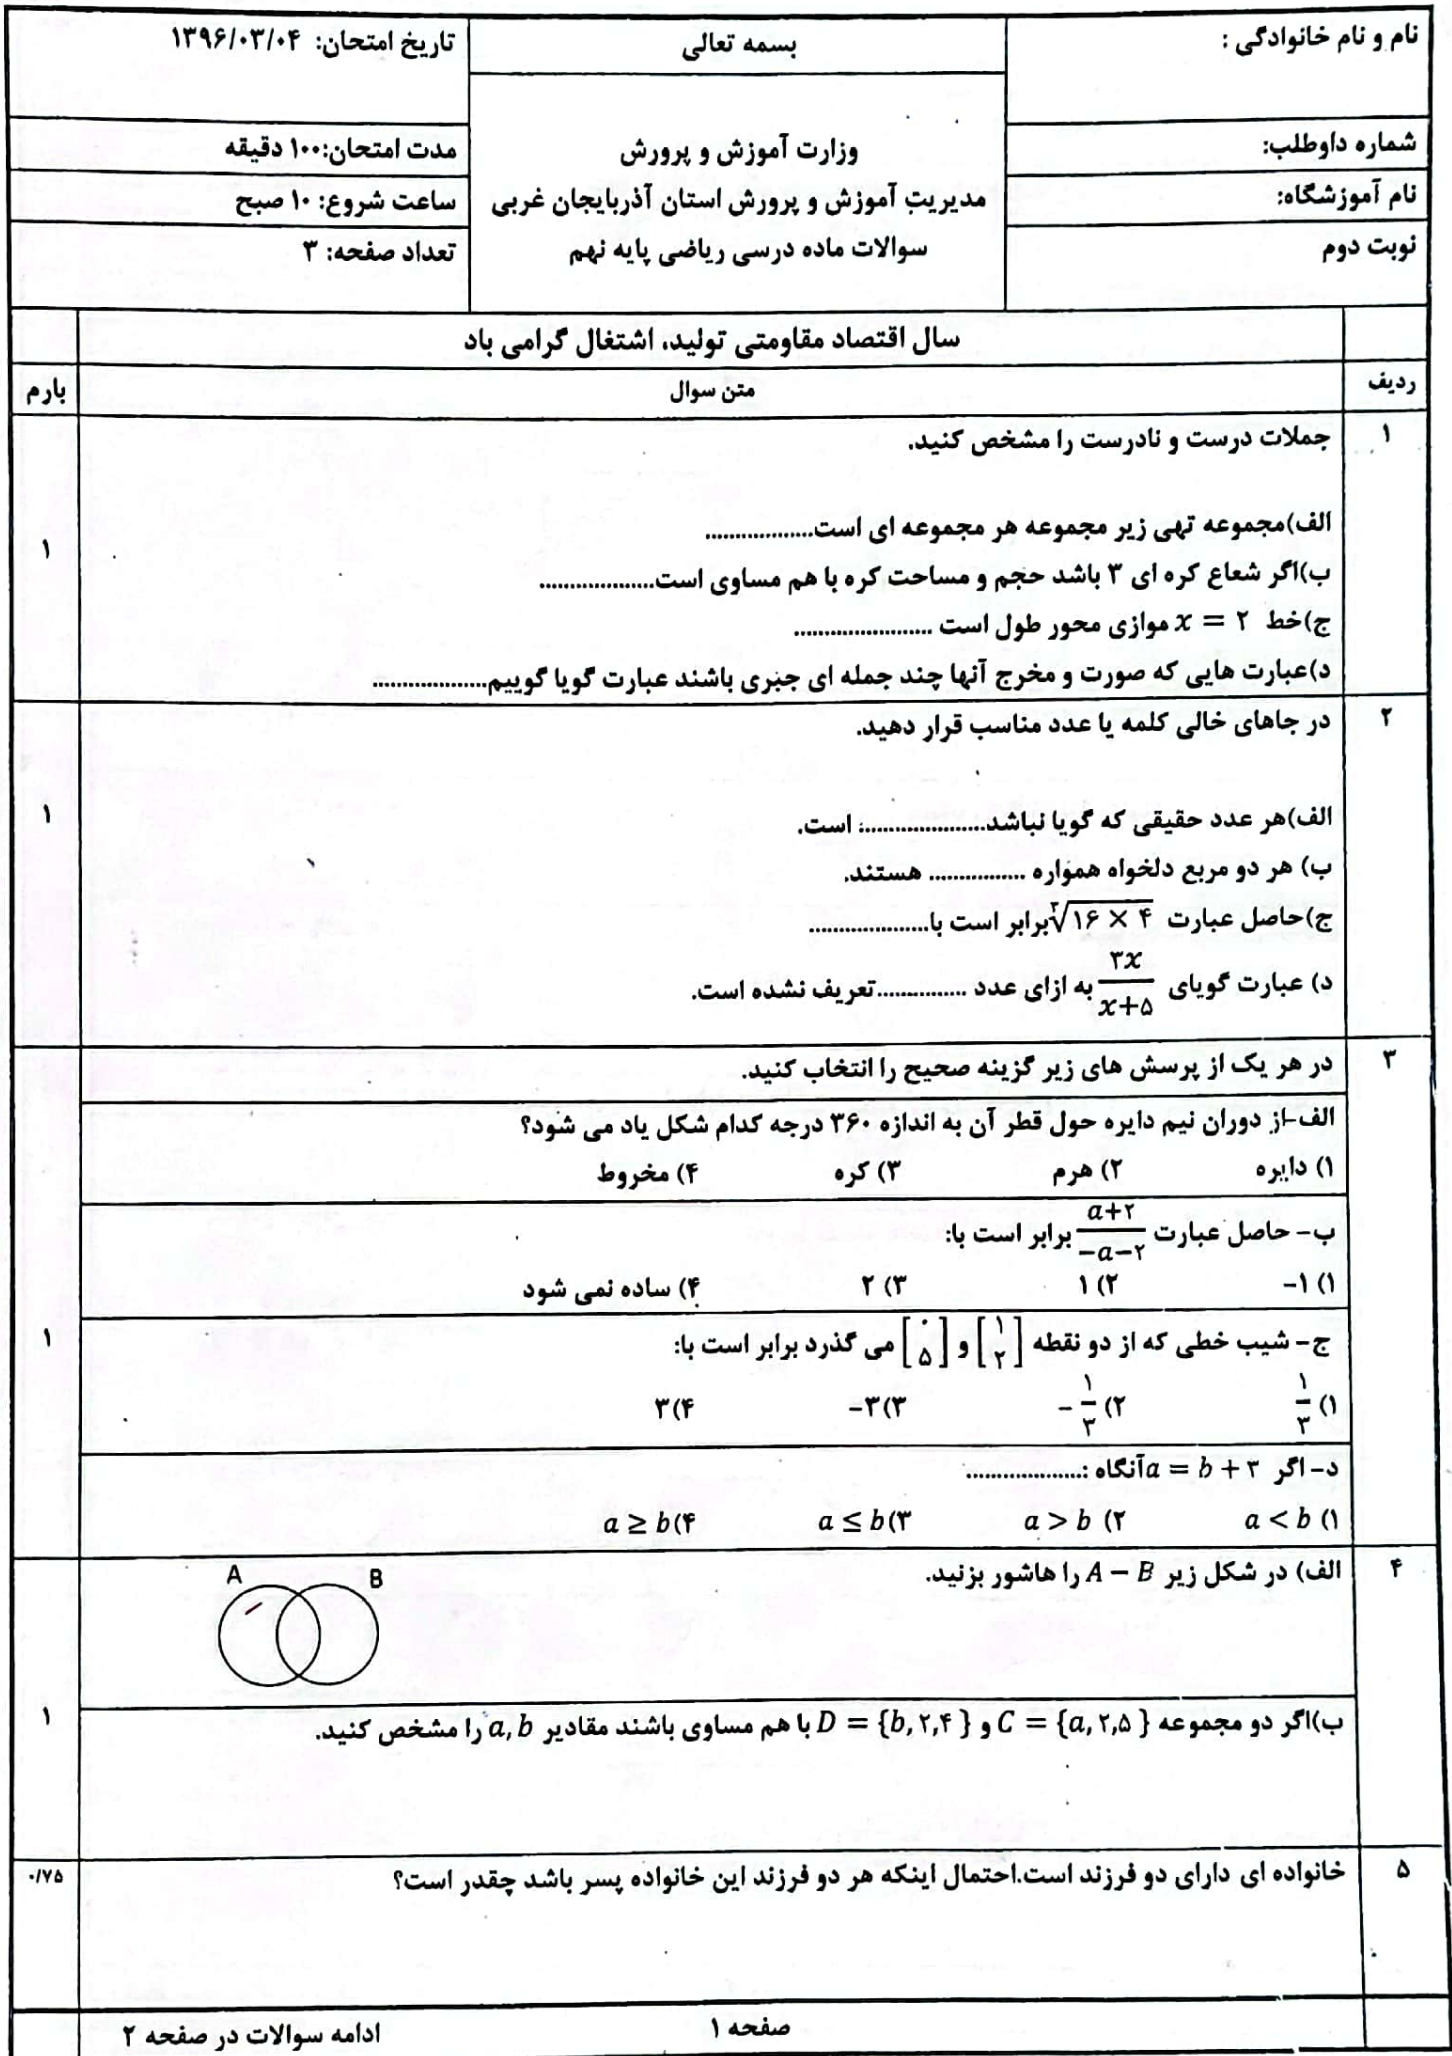 نام و نام خانوادگی :
بسمه تعالی
تاریخ امتحان: ۱۳۹۶/۰۳/۰۴
شماره داوطلب:
وزارت آموزش و پرورش
مدت امتحان:۱۰۰ دقیقه
نام آموزشگاه:
مدیریت آموزش و پرورش استان آذربایجان غربی
ساعت شروع: ۱۰ صبح
نوبت دوم
سوالات ماده درسی ریاضی پایه نهم
تعداد صفحه: ۳
سال اقتصاد مقاومتی تولید، اشتغال گرامی باد
ردیف متن سوال بارم
۱ جملات درست و نادرست را مشخص کنید.
الف)مجموعه تهی زیر مجموعه هر مجموعه ای است..................
۱
ب)اگر شعاع کره ای ۳ باشد حجم و مساحت کره با هم مساوی است...................
ج)خط x = ۲ موازی محور طول است .......................
د)عبارت هایی که صورت و مخرج آنها چند جمله ای جبری باشند عبارت گویا گوییم...................
۲ در جاهای خالی کلمه یا عدد مناسب قرار دهید.
۱
الف)هر عدد حقیقی که گویا نباشد.....................: است.
ب) هر دو مربع دلخواه همواره ................ هستند.
ج)حاصل عبارت ∛۱۶ × ۴ برابر است با....................
د) عبارت گویای ۳x/x+۵ به ازای عدد ...............تعریف نشده است.
۳ در هر یک از پرسش های زیر گزینه صحیح را انتخاب کنید.
الف-از دوران نیم دایره حول قطر آن به اندازه ۳۶۰ درجه کدام شکل یاد می شود؟
۱) دایره ۲) هرم ۳) کره ۴) مخروط
ب- حاصل عبارت a+۲/-a-۲ برابر است با:
۱) -۱ ۲) ۱ ۳) ۲ ۴) ساده نمی شود
۱
ج- شیب خطی که از دو نقطه [۱ ۲] و [۰ ۵] می گذرد برابر است با:
۱) ۱/۳ ۲) -۱/۳ ۳) -۳ ۴) ۳
د- اگر a = b + ۳ آنگاه :...................
۱) a < b ۲) a > b ۳) a ≤ b ۴) a ≥ b
۴ الف) در شکل زیر A − B را هاشور بزنید.
A B
۱
ب)اگر دو مجموعه C = {a, ۲,۵ } و D = {b, ۲,۴ } با هم مساوی باشند مقادیر a, b را مشخص کنید.
۵ خانواده ای دارای دو فرزند است.احتمال اینکه هر دو فرزند این خانواده پسر باشد چقدر است؟ ۰/۷۵
صفحه ۱
ادامه سوالات در صفحه ۲